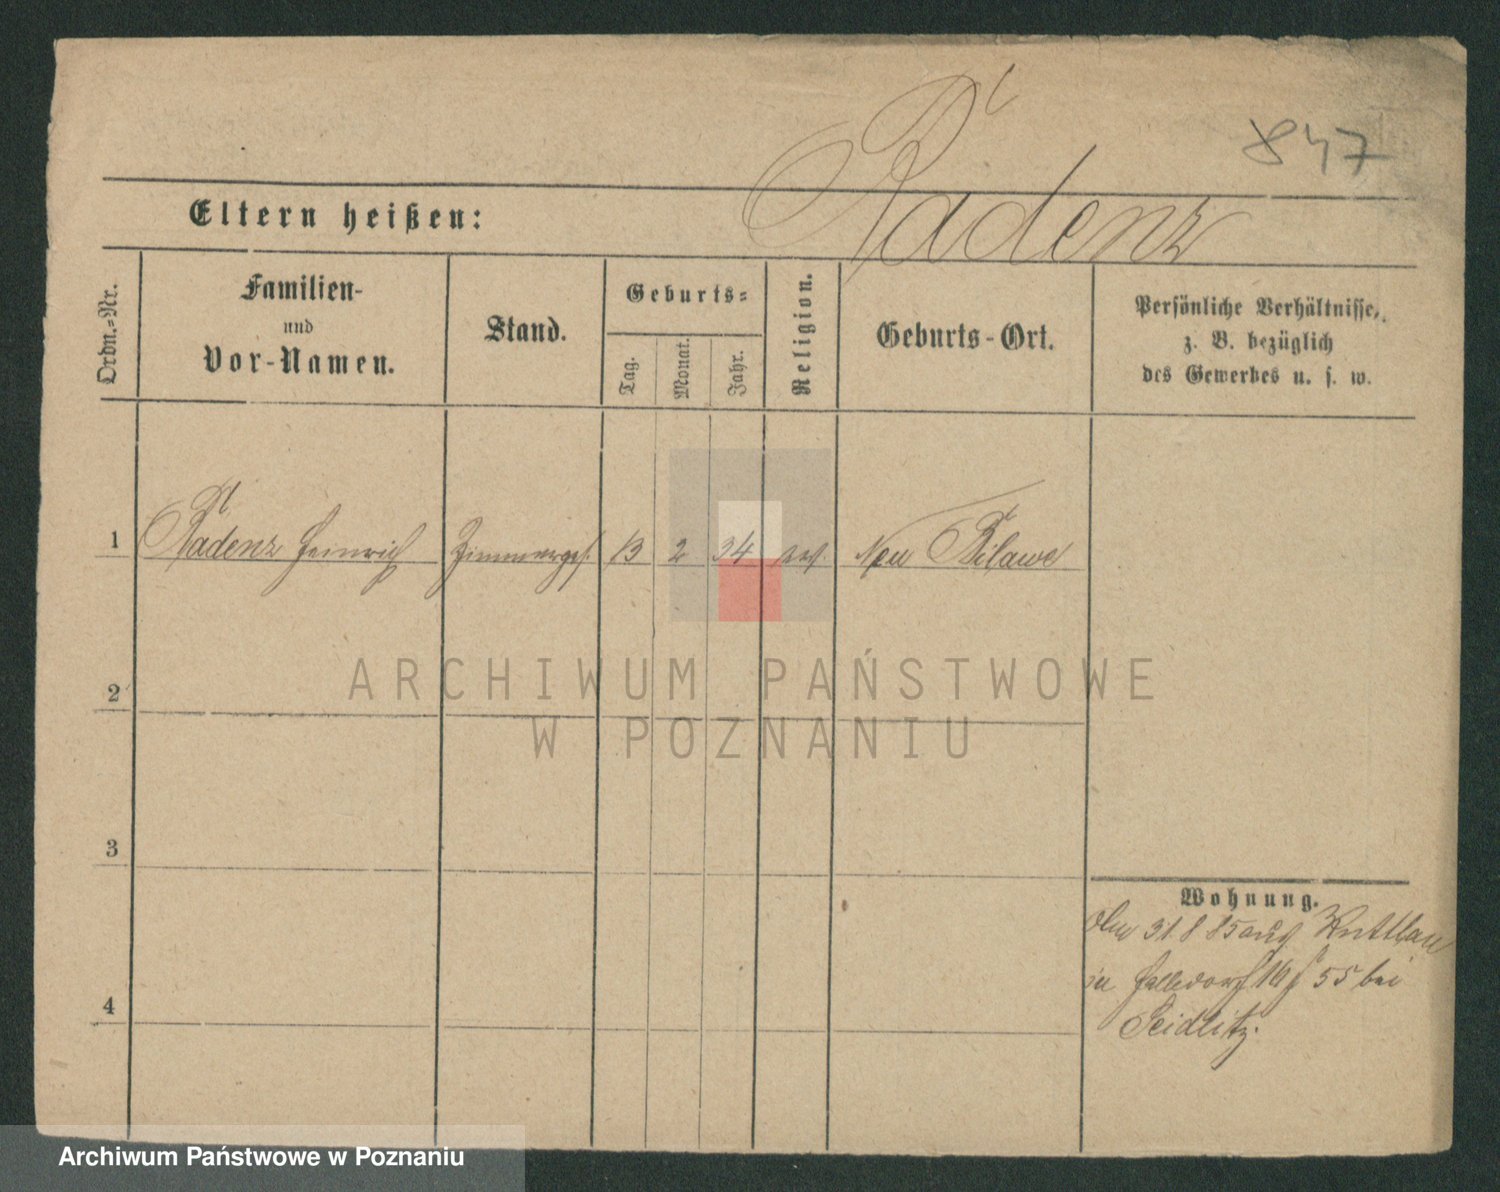 847
Rädenz
Eltern heißen:
Ordn.-Nr.
Familien-
und
Vor-Namen.
Stand.
Geburts-
Tag.
Monat.
Jahr.
Religion.
Geburts-Ort.
Persönliche Verhältnisse,
z. B. bezüglich
des Gewerbes u. s. w.
1 Rädenz Heinrich Zimmerges. 13 2 34 Neu Bilawe
2
3
4
Wohnung.
31 8 85 aus Kuttlau
in 16 / 55 bei
Seidlitz.
ARCHIWUM PAŃSTWOWE
W POZNANIU
Archiwum Państwowe w Poznaniu